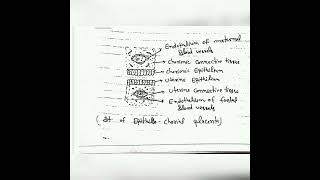 Endothelium of maternal
blood vessels
Chorionic connective tissue
Chorionic Epithelium
Uterine Epithelium
Uterine connective tissue
Endothelium of foetal
blood vessels
( of Epithelio-chorial placenta)